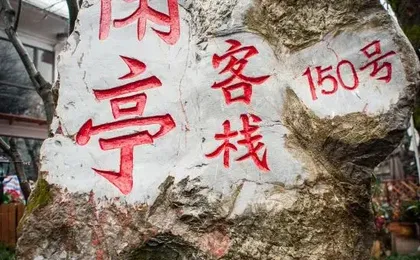 闲亭
客栈
150号